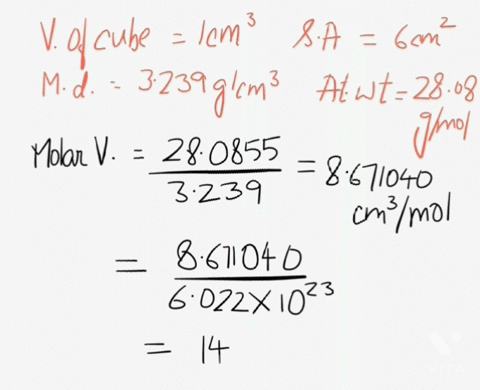 V. of cube = 1cm³ S.A = 6cm²
M.d. = 3.239g/cm³ At.wt = 28.08 g/mol
Molar V. = 28.0855 / 3.239 = 8.671040 cm³/mol
= 8.671040 / 6.022×10²³
= 14